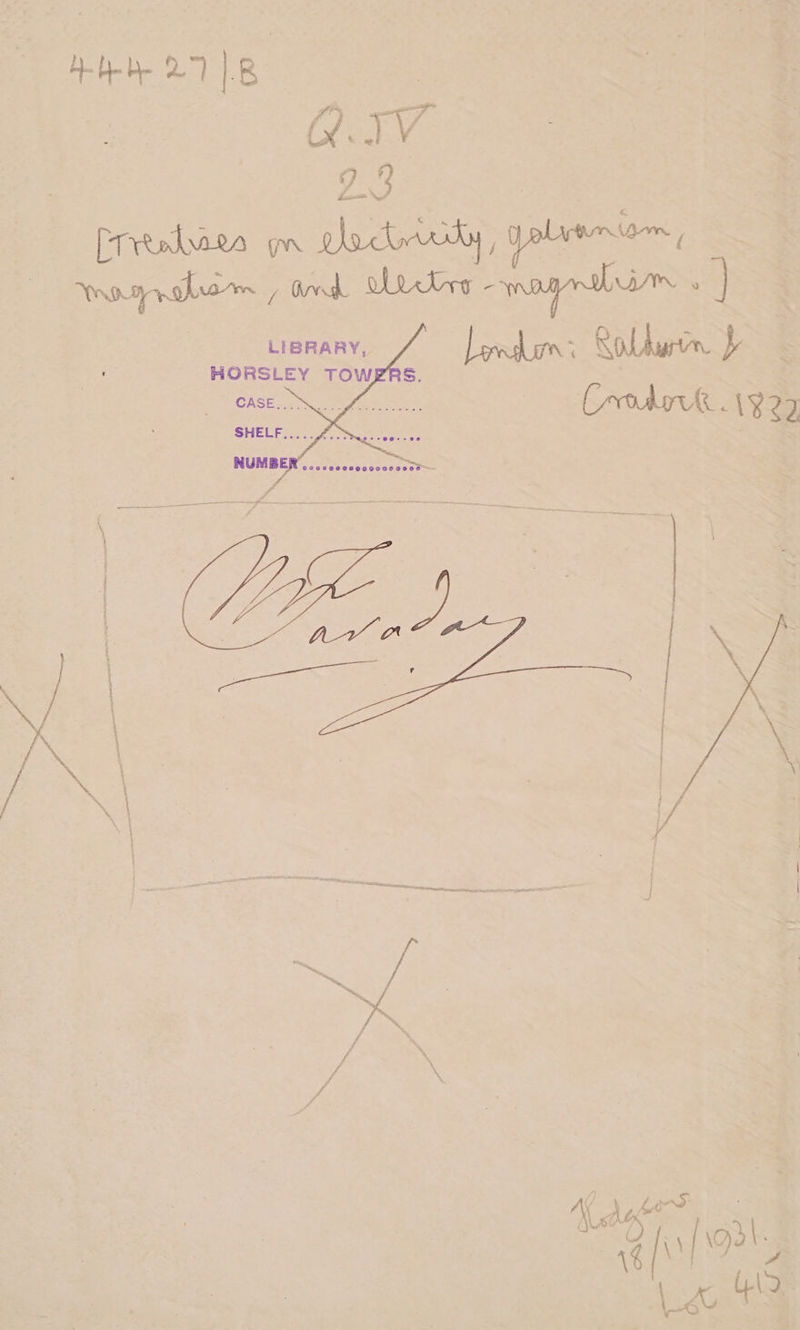 44427/B
Q.IV
23
[Treatises on electricity, galvanism,
magnetism, and electro-magnetism.]
London: Baldwin &
Cradock. 1822
LIBRARY,
HORSLEY TOWERS.
CASE
SHELF
NUMBER
M Faraday
Hodgsons
18/11/1931.
Lot 415